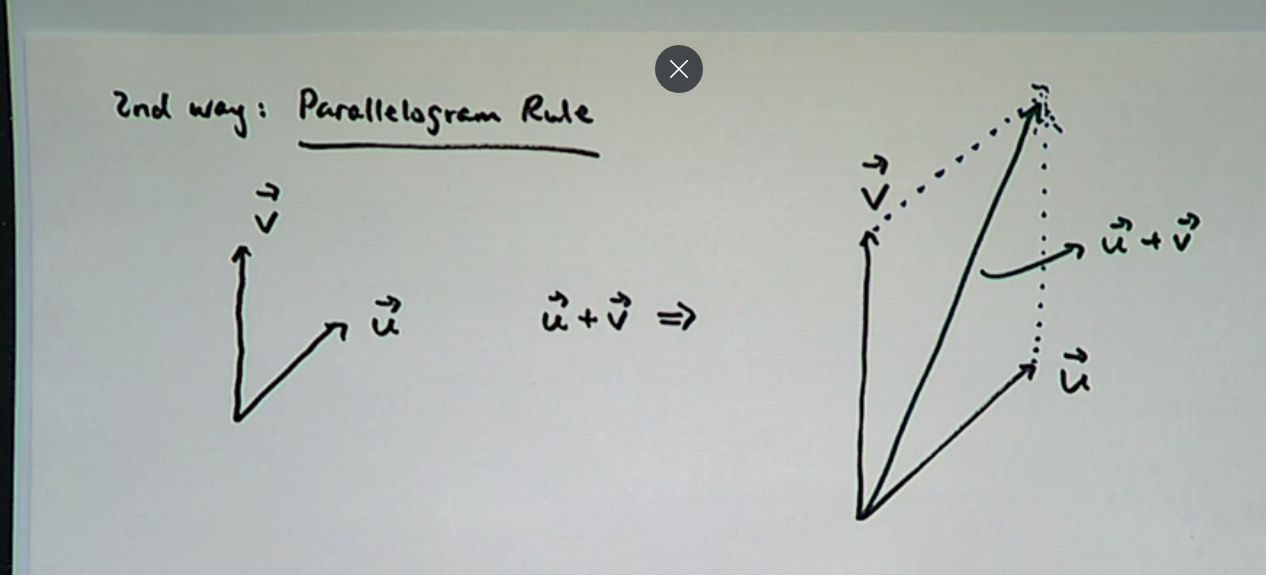 2nd way: Parallelogram Rule
v⃗
u⃗
u⃗ + v⃗ ⇒
v⃗
u⃗ + v⃗
u⃗